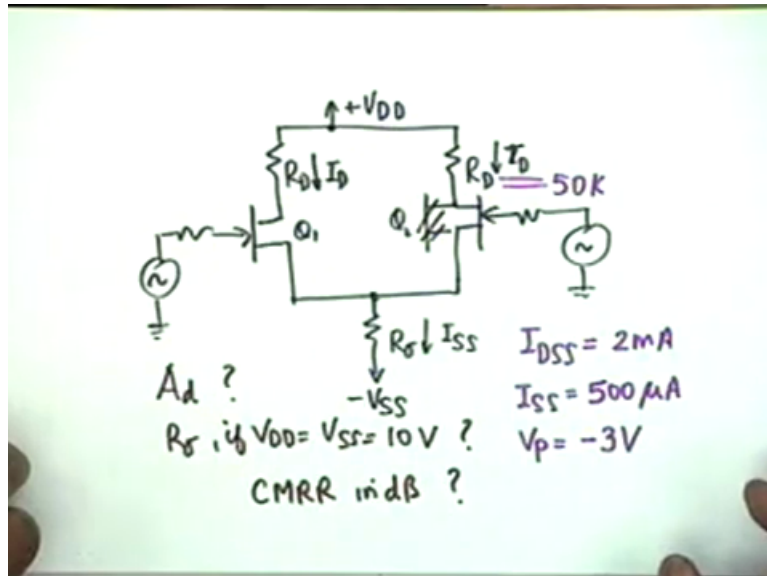 +VDD
RD ID
RD ID
50K
Q1
Q1
Rs ISS
-VSS
IDSS = 2mA
ISS = 500 μA
Vp = -3V
Ad ?
Rs, if VDD = VSS = 10V ?
CMRR in dB ?